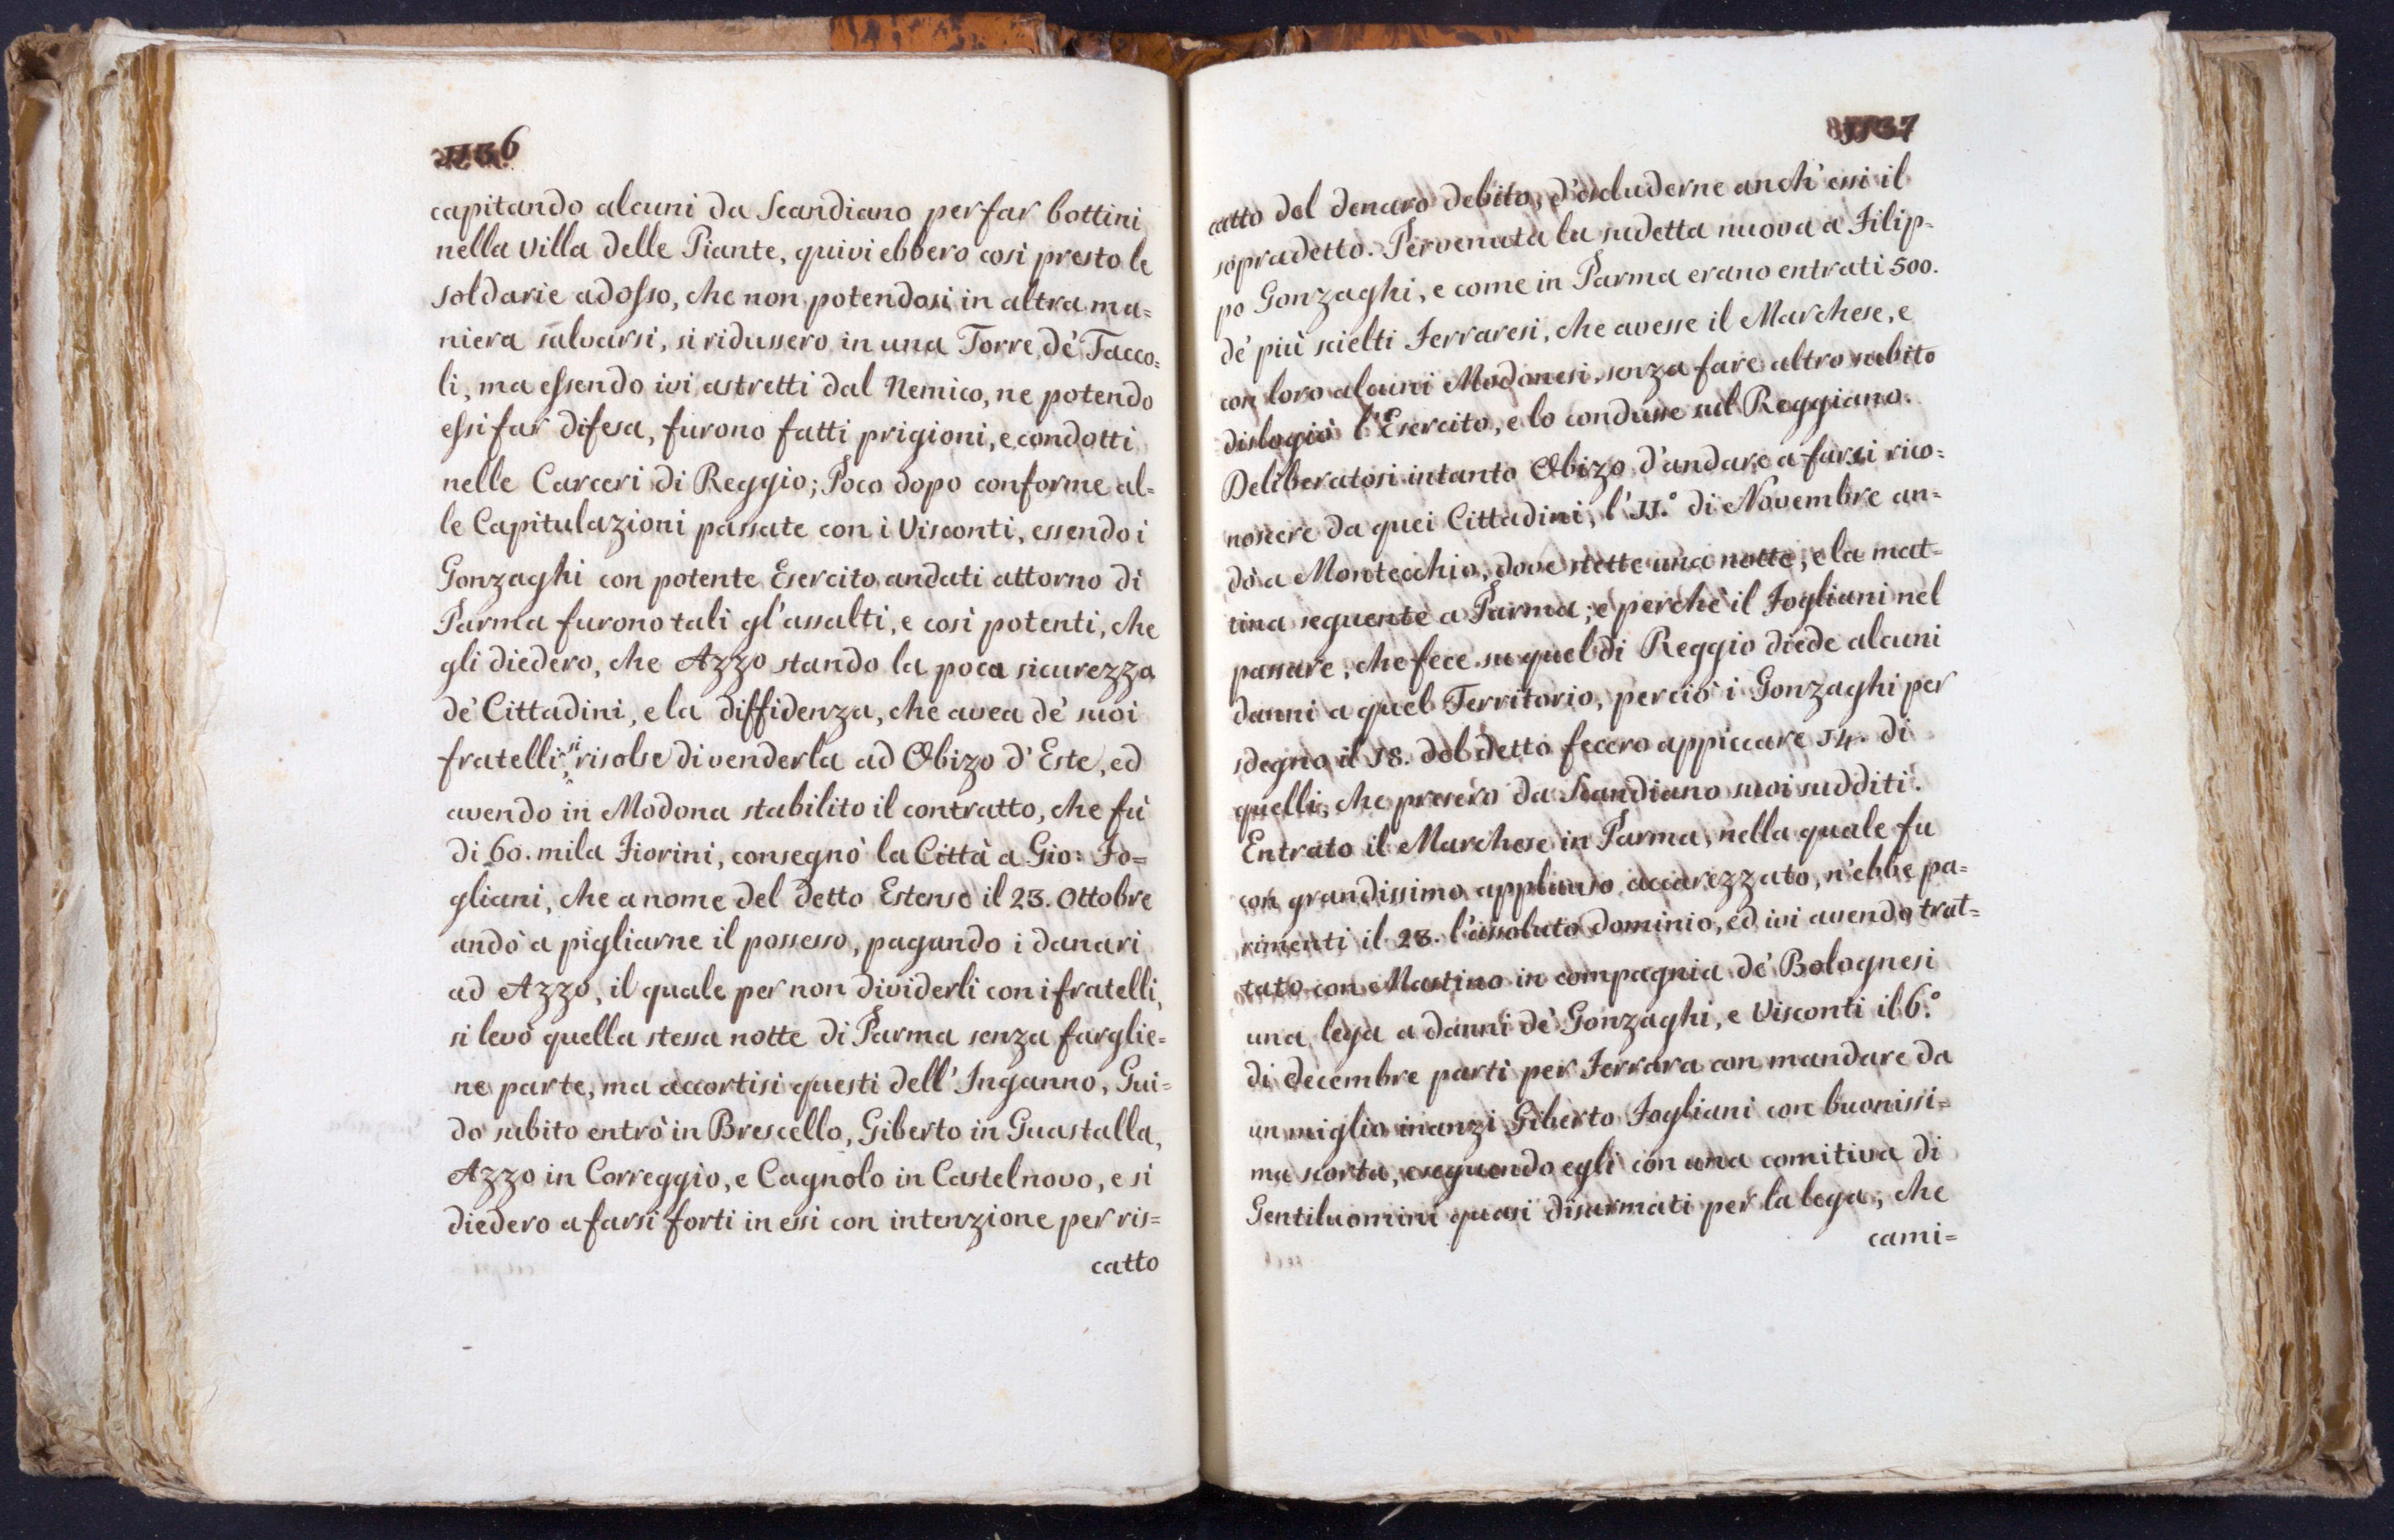 1136
capitando alcuni da Scandiano per far bottini
nella Villa delle Piante, quivi ebbero così presto le
soldarie adosso, che non potendosi in altra ma=
niera salvarsi, si ridussero in una Torre dè Tacco=
li, ma essendo ivi astretti dal Nemico, ne potendo
essi far difesa, furono fatti prigioni, e condotti
nelle Carceri di Reggio; Poco dopo conforme al=
le Capitulazioni passate con i Visconti, essendo i
Gonzaghi con potente Esercito andati attorno di
Parma furono tali gl'assalti, e così potenti, che
gli diedero, che Azzo stando la poca sicurezza
dè Cittadini, e la diffidenza, che avea dè suoi
fratelli, si risolse di venderla ad Obizo d'Este, ed
avendo in Modona stabilito il contratto, che fù
di 60. mila Fiorini, consegnò la Città a Gio: Fo=
gliani, che a nome del detto Estense il 23. Ottobre
andò a pigliarne il possesso, pagando i danari
ad Azzo, il quale per non dividerli con i fratelli,
si levò quella stessa notte di Parma senza farglie=
ne parte, ma accortisi questi dell'Inganno, Gui=
do subito entrò in Brescello, Giberto in Guastalla,
Azzo in Correggio, e Cagnolo in Castelnovo, e si
diedero a farsi forti in essi con intenzione per ris=
catto
1137
catto del denaro debito, d'escluderne anch'essi il
sopradetto. Pervenuta la sudetta nuova a Filip=
po Gonzaghi, e come in Parma erano entrati 500.
dè più scielti Ferraresi, che avesse il Marchese, e
con loro alcuni Modonesi, senza fare altro subito
dislogiò l'Esercito, e lo condusse sul Reggiano.
Deliberatosi intanto Obizo d'andare a farsi rico=
noscere da quei Cittadini, l'11.° di Novembre an=
dò a Montecchio, dove stette una notte, e la mat=
tina seguente a Parma; e perchè il Fogliani nel
passare, che fece su quel di Reggio diede alcuni
danni a quel Territorio, perciò i Gonzaghi per
sdegno il 18. del detto fecero appiccare 14. di
quelli, che presero da Scandiano suoi sudditi.
Entrato il Marchese in Parma, nella quale fu
con grandissimo applauso accarezzato, n'ebbe pa=
rimenti il 23. l'assoluto dominio, ed ivi avendo trat=
tato con Mastino in compagnia dè Bolognesi
una lega a danni dè Gonzaghi, e Visconti il 6.°
di decembre partì per Ferrara con mandare da
un miglio inanzi Giberto Fogliani con buonissi=
ma scorta, eseguendo egli con una comitiva di
Gentiluomini quasi disarmati per la lega, che
cami=